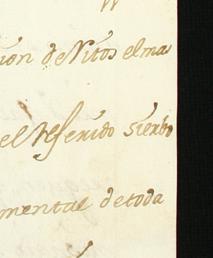 ion de Nitos el ma
el Referido sierbo
mental de toda